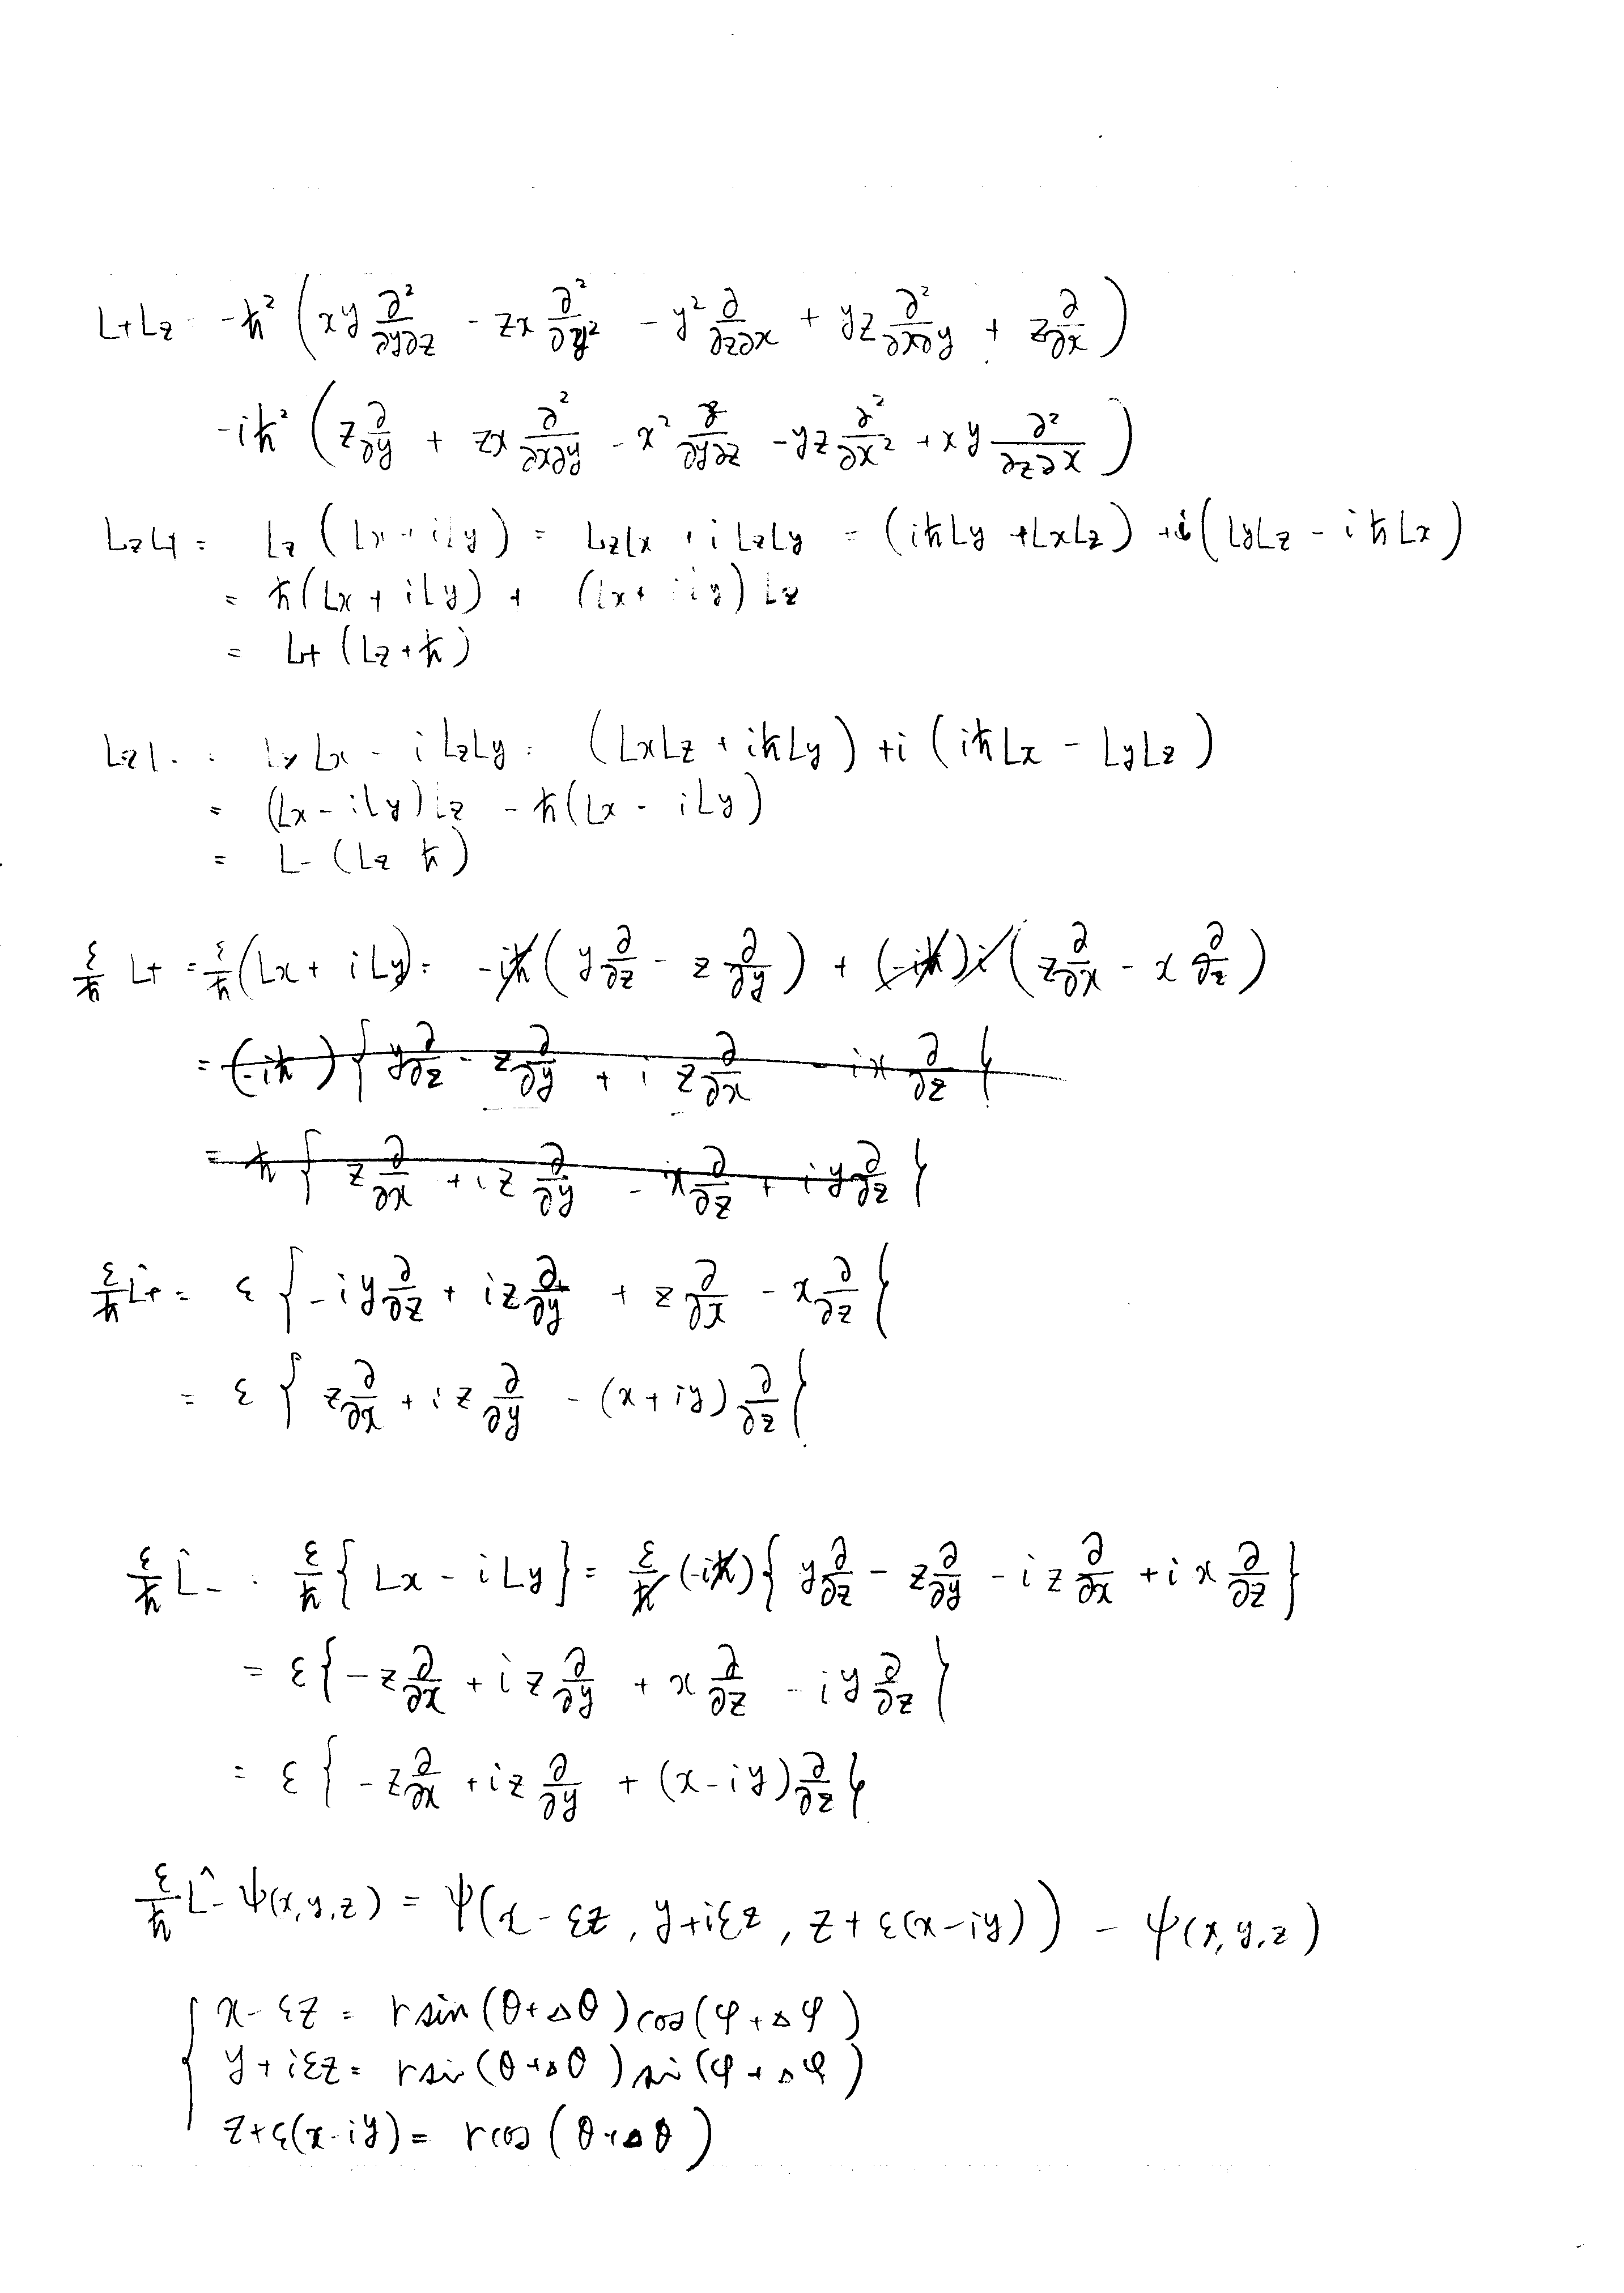 L+Lz = -ħ² ( xy ∂²/∂y∂z - zx ∂²/∂y² - y² ∂/∂z∂x + yz ∂²/∂x∂y + z ∂/∂x )
-iħ² ( z ∂/∂y + zx ∂²/∂x∂y - x² ∂/∂y∂z - yz ∂²/∂x² + xy ∂²/∂z∂x )
LzL+ = Lz ( Lx + iLy ) = LzLx + i LzLy = (iħLy + LxLz) + i( LyLz - iħLx )
= ħ(Lx + iLy) + (Lx + iLy) Lz
= L+ (Lz + ħ)
LzL- = LzLx - i LzLy = (LxLz + iħLy) + i (iħLx - LyLz)
= (Lx - iLy)Lz - ħ(Lx - iLy)
= L- (Lz ħ)
ε/ħ L+ = ε/ħ (Lx + iLy) = -iħ ( y ∂/∂z - z ∂/∂y ) + (-iħ)i ( z ∂/∂x - x ∂/∂z )
= (-iħ) { y ∂/∂z - z ∂/∂y + i z ∂/∂x - ix ∂/∂z }
= ħ { z ∂/∂x + iz ∂/∂y - x ∂/∂z + iy ∂/∂z }
ε/ħ L̂+ = ε { -iy ∂/∂z + iz ∂/∂y + z ∂/∂x - x ∂/∂z }
= ε { z ∂/∂x + iz ∂/∂y - (x+iy) ∂/∂z }
ε/ħ L̂- = ε/ħ { Lx - iLy } = ε/ħ (-iħ) { y ∂/∂z - z ∂/∂y - iz ∂/∂x + ix ∂/∂z }
= ε { -z ∂/∂x + iz ∂/∂y + x ∂/∂z - iy ∂/∂z }
= ε { -z ∂/∂x + iz ∂/∂y + (x-iy) ∂/∂z }
ε/ħ L̂- ψ(x,y,z) = ψ(x-εz, y+iεz, z+ε(x-iy)) - ψ(x,y,z)
x-εz = r sin(θ+Δθ)cos(φ+Δφ)
y+iεz = r sin(θ+Δθ)sin(φ+Δφ)
z+ε(x-iy) = r cos(θ+Δθ)